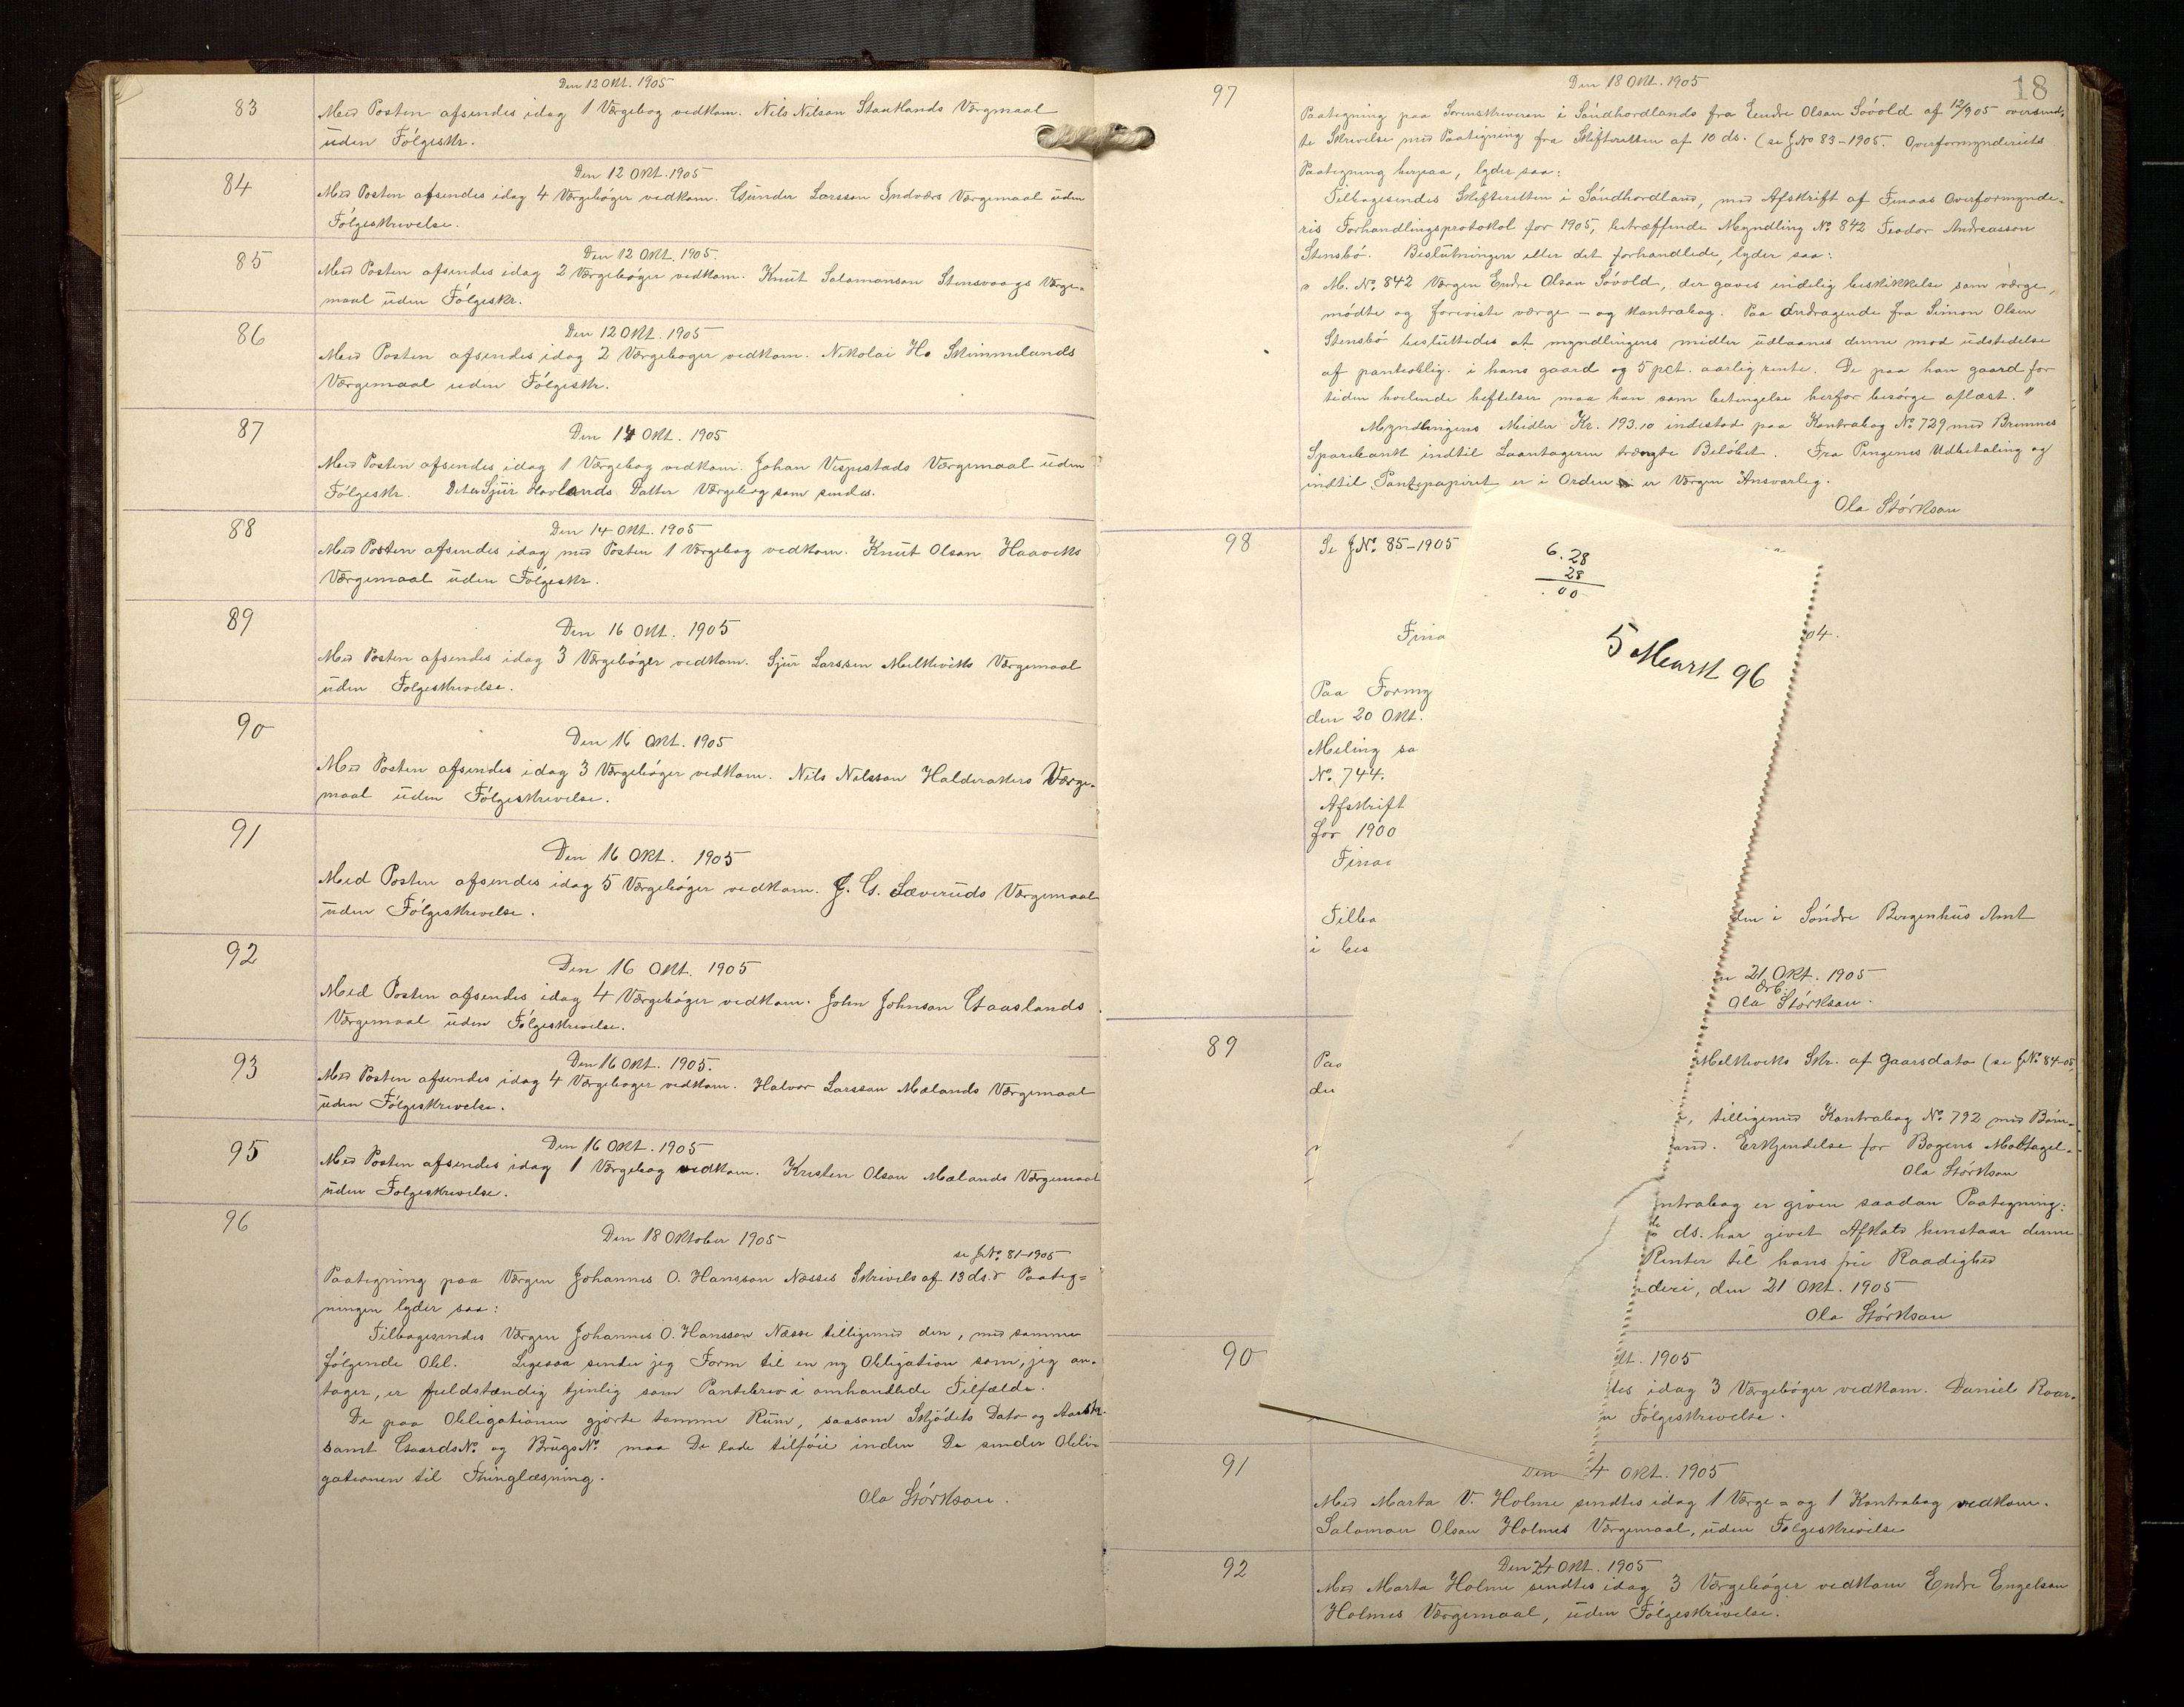 Den 12 Okt. 1905
83
Med Posten afsendes idag 1 Værgebog vedkom. Nils Nilsen Staatlands Værgmaal
uden Følgeskr.
Den 12 Okt. 1905
84
Med Posten afsendes idag 4 Værgebøger vedkom. Gunder Larsson Indværs Værgemaal uden
Følgeskrivelse.
Den 12 Okt. 1905.
85
Med Posten afsendes idag 2 Værgebøger vedkom. Knut Salamonson Stensvaags Værge-
maal uden Følgeskr.
Den 12 Okt. 1905
86
Med Posten afsendes idag 2 Værgebøger vedkom. Nikolai H. Skimmelands
Værgemaal uden Følgeskr.
87
Den 14 Okt. 1905
Med Posten afsendes idag 1 Værgebog vedkom. Johan Vespestads Værgemaal uden
Følgeskr. Det er Sjur Hovlands Datter Værgebog som sendes.
88
Den 14 Okt. 1905
Med Posten afsendes idag med Posten 1 Værgebog vedkom. Knut Olson Haaviks
Værgemaal uden Følgeskr.
89
Den 16 Okt. 1905
Med Posten afsendes idag 3 Værgebøger vedkom. Sjur Larssen Melkeviks Værgemaal
uden Følgeskrivelse.
90
Den 16 Okt. 1905
Med Posten afsendes idag 3 Værgebøger vedkom. Nils Nilsson Halderakers Værge-
maal uden Følgeskrivelse.
91
Den 16 Okt. 1905
Med Posten afsendes idag 5 Værgebøger vedkom. J. G. Sæveruds Værgemaal
uden Følgeskrivelse.
92
Den 16 Okt. 1905
Med Posten afsendes idag 4 Værgebøger vedkom. John Johnson Gaaslands
Værgemaal uden Følgeskrivelse.
93
Den 16 Okt. 1905.
Med Posten afsendes idag 4 Værgebøger vedkom. Halvor Larsson Mælands Værgemaal
uden Følgeskrivelse.
95
Den 16 Okt. 1905
Med Posten afsendes idag 1 Værgebog vedkom. Kristen Olson Mælands Værgemaal
uden Følgeskrivelse.
96
Den 18 Oktober 1905
se J.No. 81-1905
Paategning paa Værgen Johannes O. Hansson Næsses Skrivels af 13 ds. Paateg=
ningen lyder saa:
Tilbagesendes Værgen Johannes O. Hansson Næsse tilligemed den, med samme
følgende Obl. Ligesaa sender jeg Form til en ny Obligation som, jeg an-
tager, er fuldstændig tjenlig som Pantebrev i omhandlede Tilfælde.
De paa Obligationen gjorte tomme Rum, saasom Skjødets Dato og
samt GaardsNo. og BrugsNo. maa De lade tilføie inden De sender Obli-
gationen til Thinglæsning.
Ola Størkson.
18
Den 18 Okt. 1905
97
Paategning paa Sorenskriveren i Søndhordlands fra Endre Olson Søvold af 12/9 05 oversend-
te Skrivelse med Paategning fra Skifteretten af 10 ds. (se J.No 83-1905. Overformynderiets
Paategning herpaa, lyder saa:
Tilbagesendes Skifteretten i Søndhordland, med Afskrift af Finaas Overformynde-
ris Forhandlingsprotokol for 1905, betræffende Myndling No. 842 Teodor Andreasson
Stensbø. Beslutningen eller det forhandlede, lyder saa:
" M. No. 842 Værgen Endre Olson Søvold, der gaves endelig beskikkelse som værge,
mødte og foreviste værge – og kontrabog. Paa andragende fra Simon Olsen
Stensbø besluttedes at myndlingens midler udlaanes denne mod udstedelse
af panteoblig. i hans gaard og 5 pct. aarlig rente. De paa han gaard for
tiden hvelende heftelser maa han som betingelse herfor besørge aflæst. "
Myndlingens Midler Kr. 193.10 indestod paa Kontrabog No. 729 med Bremnes
Sparebank indtil Laantageren trængte Beløbet. Fra Pengenes Udbetaling og
indtil Pantepapiret er i Orden er Værgen Ansvarlig.
Ola Størkson
98
Se J.No. 85-1905
6.28
28
.00
5 Mark 96
Fina
04.
Paa Formy
den 20 Okt.
Meling sa
No. 744.
Afskrift
for 1900
Finaa
Tilba
den i Søndre Bergenhus Amt
i bes
n 21 Okt. 1905
Ola Størkson.
89
Paa
Melkeviks Skr. af Gaarsdato (se J.No. 84-05
den
, tilligemed Kontrabog No. 792 med Bøm-
and. Erkjendelse for Bogens Modtagel-
Ola Størkson
ntrabog er given saadan Paategning:
ds. har givet Afkald henstaar denne
Renter til hans frie Raadighed
deri, den 21 Okt. 1905
Ola Størkson
90
kt. 1905
tes idag 3 Værgebøger vedkom. Daniel Roar-
n Følgeskrivelse.
91
Den 4 Okt. 1905
Med Marta V. Holme sendtes idag 1 Værge = og 1 Kontrabog vedkom.
Salamon Olson Holmes Værgemaal, uden Følgeskrivelse
92
Den 24 Okt. 1905
Med Marta Holme sendtes idag 3 Værgebøger vedkom Endre Engelson
Holmes Værgemaal, uden Følgeskrivelse.